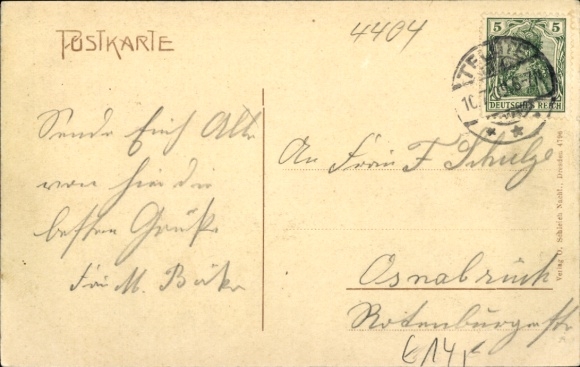 4404
POSTKARTE
5 5
DEUTSCHES REICH
TELGTE
10
Sende Euch Alle
von hier die
besten Grüße
Frau M.
An Frau F Schulze
Osnabrück
Rotenburgerstr
Verlag O. Schleich Nachf., Dresden 4796